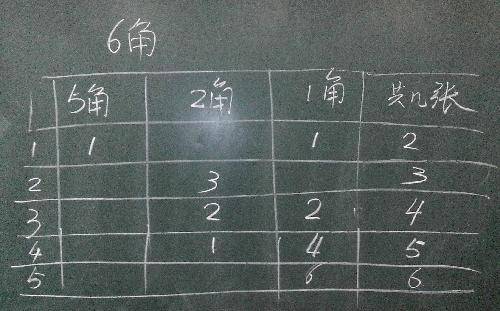 6角
5角 2角 1角 共几张
1 1 1 2
2 3 3
3 2 2 4
4 1 4 5
5 6 6